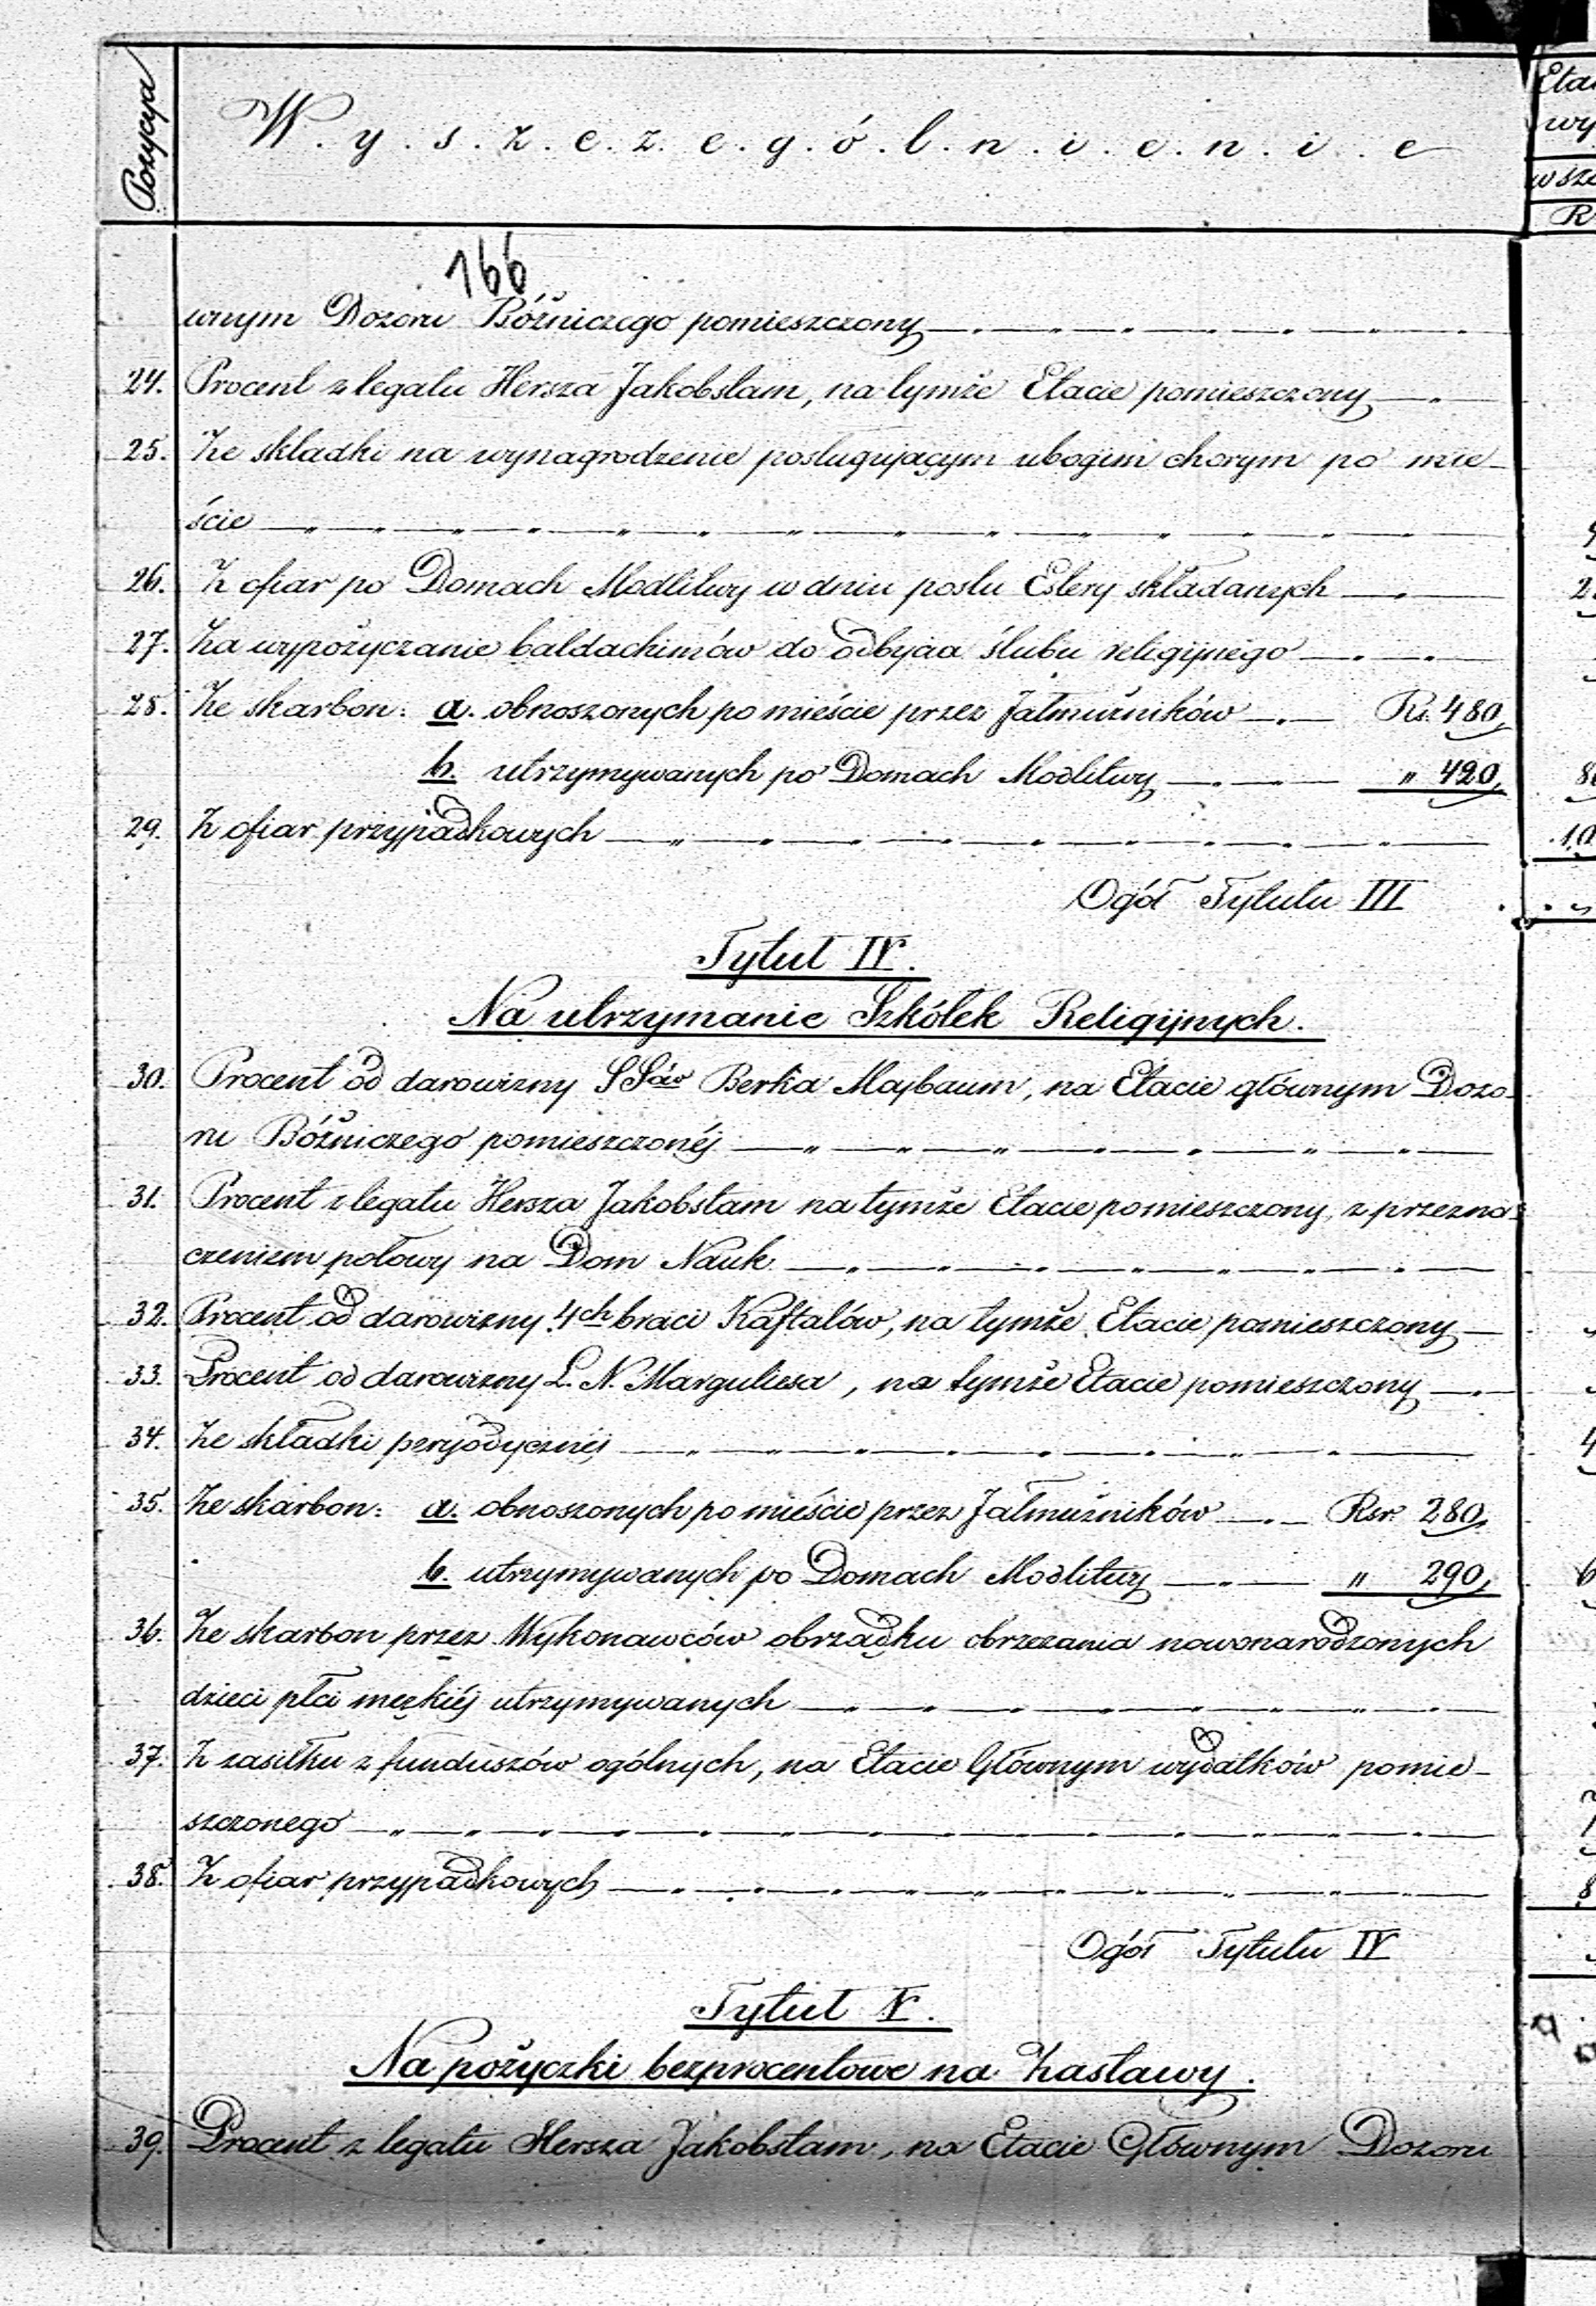 Pozycya
W.y.s.z.c.z.e.g.ó.l.n.i.e.n.i.e
Eta
wy
w sze
R
166
wnym Dozoru Bóżniczego pomieszczony
24. Procent z legatu Hersza Jakobstam, na tymże Etacie pomieszczony
25. Ze składki na wynagrodzenie posługującym ubogim chorym po mie-
ście
26. Z ofiar po Domach Modlitwy w dniu postu Estery składanych
27. Za wypożyczanie baldachimów do odbycia ślubu religijnego
28. Ze skarbon: a. obnoszonych po mieście przez Jałmużników Rs. 480,
b. utrzymywanych po Domach Modlitwy " 420,
29. Z ofiar przypadkowych
Ogół Tytułu III
Tytuł IV.
Na utrzymanie Szkółek Religijnych.
30. Procent od darowizny SSów Berka Majbaum, na Etacie głównym Dozo-
ru Bóżniczego pomieszczonéj
31. Procent z legatu Hersza Jakobstam na tymże Etacie pomieszczony, z przezna-
czeniem połowy na Dom Nauk
32. Procent od darowizny 4ch braci Kaftalów, na tymże Etacie pomieszczony
33. Procent od darowizny L. N. Marguliesa, na tymże Etacie pomieszczony
34. Ze składki peryodycznéj
35. Ze skarbon: a. obnoszonych po mieście przez Jałmużników Rsr. 280,
b. utrzymywanych po Domach Modlitwy " 290,
36. Ze skarbon przez Wykonawców obrządku obrzezania nowonarodzonych
dzieci płci męzkiéj utrzymywanych
37. Z zasiłku z funduszów ogólnych, na Etacie Głównym wydatków pomie-
szczonego
38. Z ofiar przypadkowych
Ogół Tytułu IV
Tytuł V.
Na pożyczki bezprocentowe na Zastawy.
39. Procent z legatu Hersza Jakobstam, na Etacie Głównym Dozoru